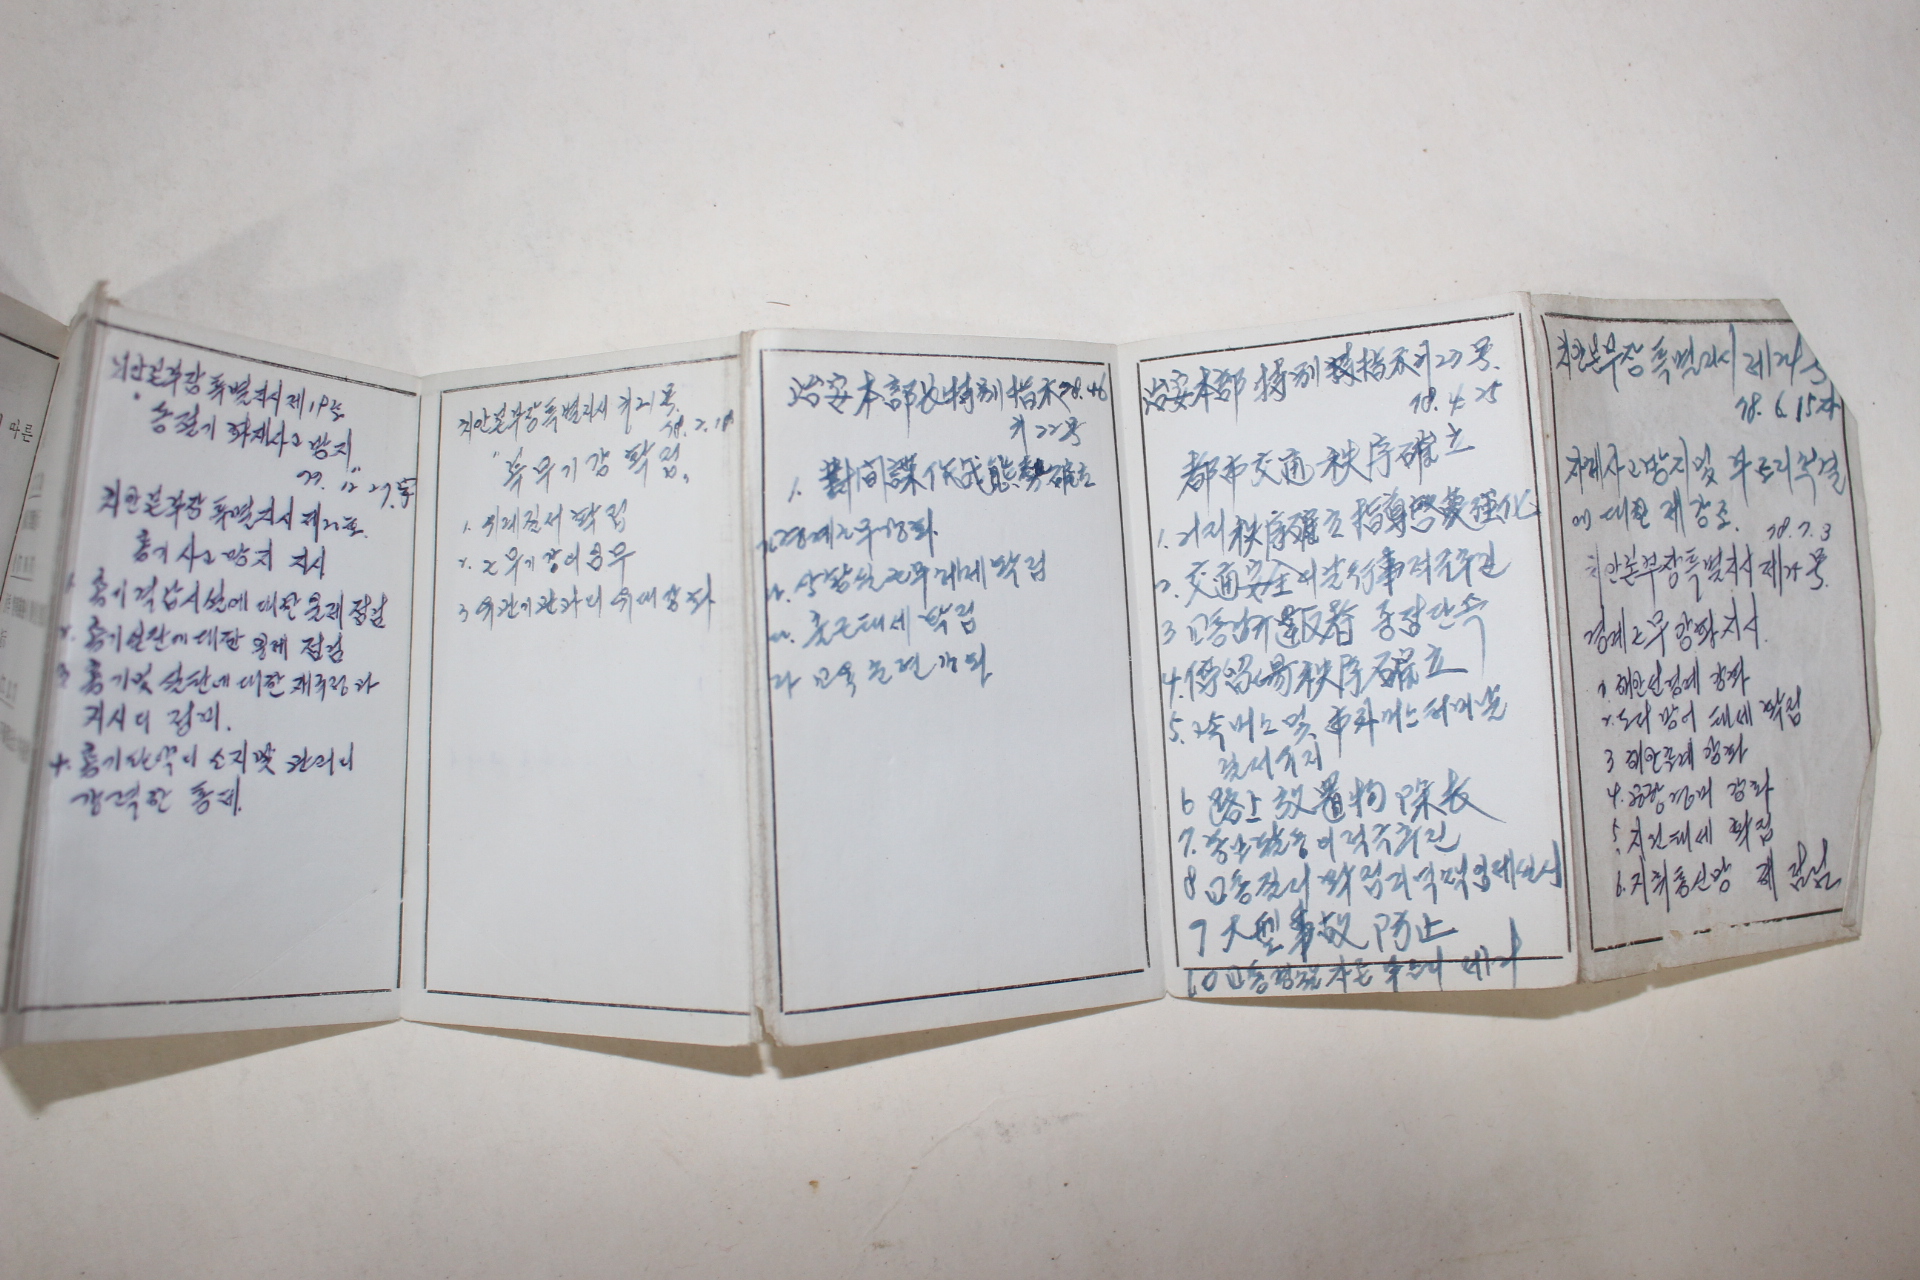 마른
치안본부장 특별지시 제19호
송절기 화재사고 방지
77. 12. 27.
치안본부장 특별지시 제20호.
총기사고 방지 지시
1. 총기 격납시설에 대한 일제 점검
2. 총기 실탄에 대한 일제 점검
3 총기 및 실탄에 대한
지시의 정비.
4. 총기 탄약의 소지 및 관리의
강력한 통제.
치안본부장 특별지시 제21호.
78. 2. 18
"복무기강 확립"
1. 위계질서 확립
2. 근무기강의
3 위간기관과의 유대강화
治安本部長 特別 指示 78. 4. 6
제 22호
1. 對間諜作戰態勢 確立
가. 경계근무강화
나. 상황실 근무체제 확립
다. 출근태세 확립
라 교육 훈련 강화
治安本部 特別 指示 제 23 号.
78. 4. 25
都市交通 秩序 確立
1. 거리 秩序確立 指導啓蒙 强化
2. 交通安全의 날 行事 적극추진
3 교통법규 違反者 중점단속
4. 停留場 秩序 確立
5. 고속버스 및 市외버스 터미널
질서유지
6 路上 放置物 除去
7. 홍보활동의 적극추진
8 교통질서 확립지역 책임제실시
9 大型事故 防止
10 교통경찰 부조리 제거
치안본부장 특별지시 제24호
78. 6. 15자
자체사고방지 및 부조리 척결
에 대한 재강조.
78. 7. 3
치안본부장 특별지시 제25号.
경계근무 강화 지시.
1. 해안선경계 강화
2. 도서 방어 태세 확립
3 해안경계 강화
4. 공항경비 강화
5. 지원태세 확립
6. 지휘통신망